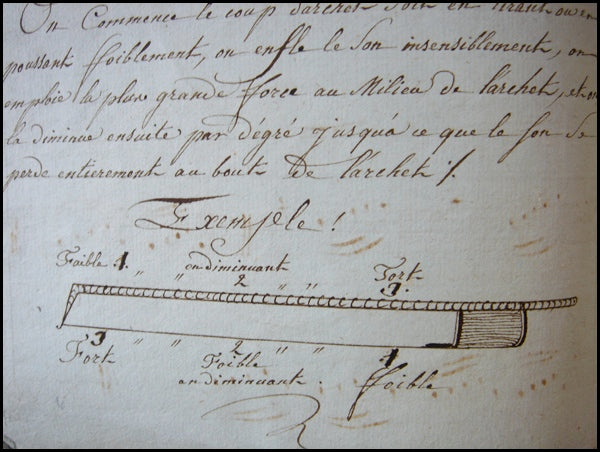 On Commence le coup d'archet Soit en tirant ou en
poussant foiblement, on enfle le Son insensiblement, on
emploie la plus grande force au Milieu de l'archet, et on
la diminue ensuite par dégré jusqu'à ce que le Son Se
perde entierement au bout de l'archet ./.
Exemple !
Faible . 1. " " en diminuant 2 " " Fort 3.
3 Fort " " 2 Foible en diminuant . " " 1 foible